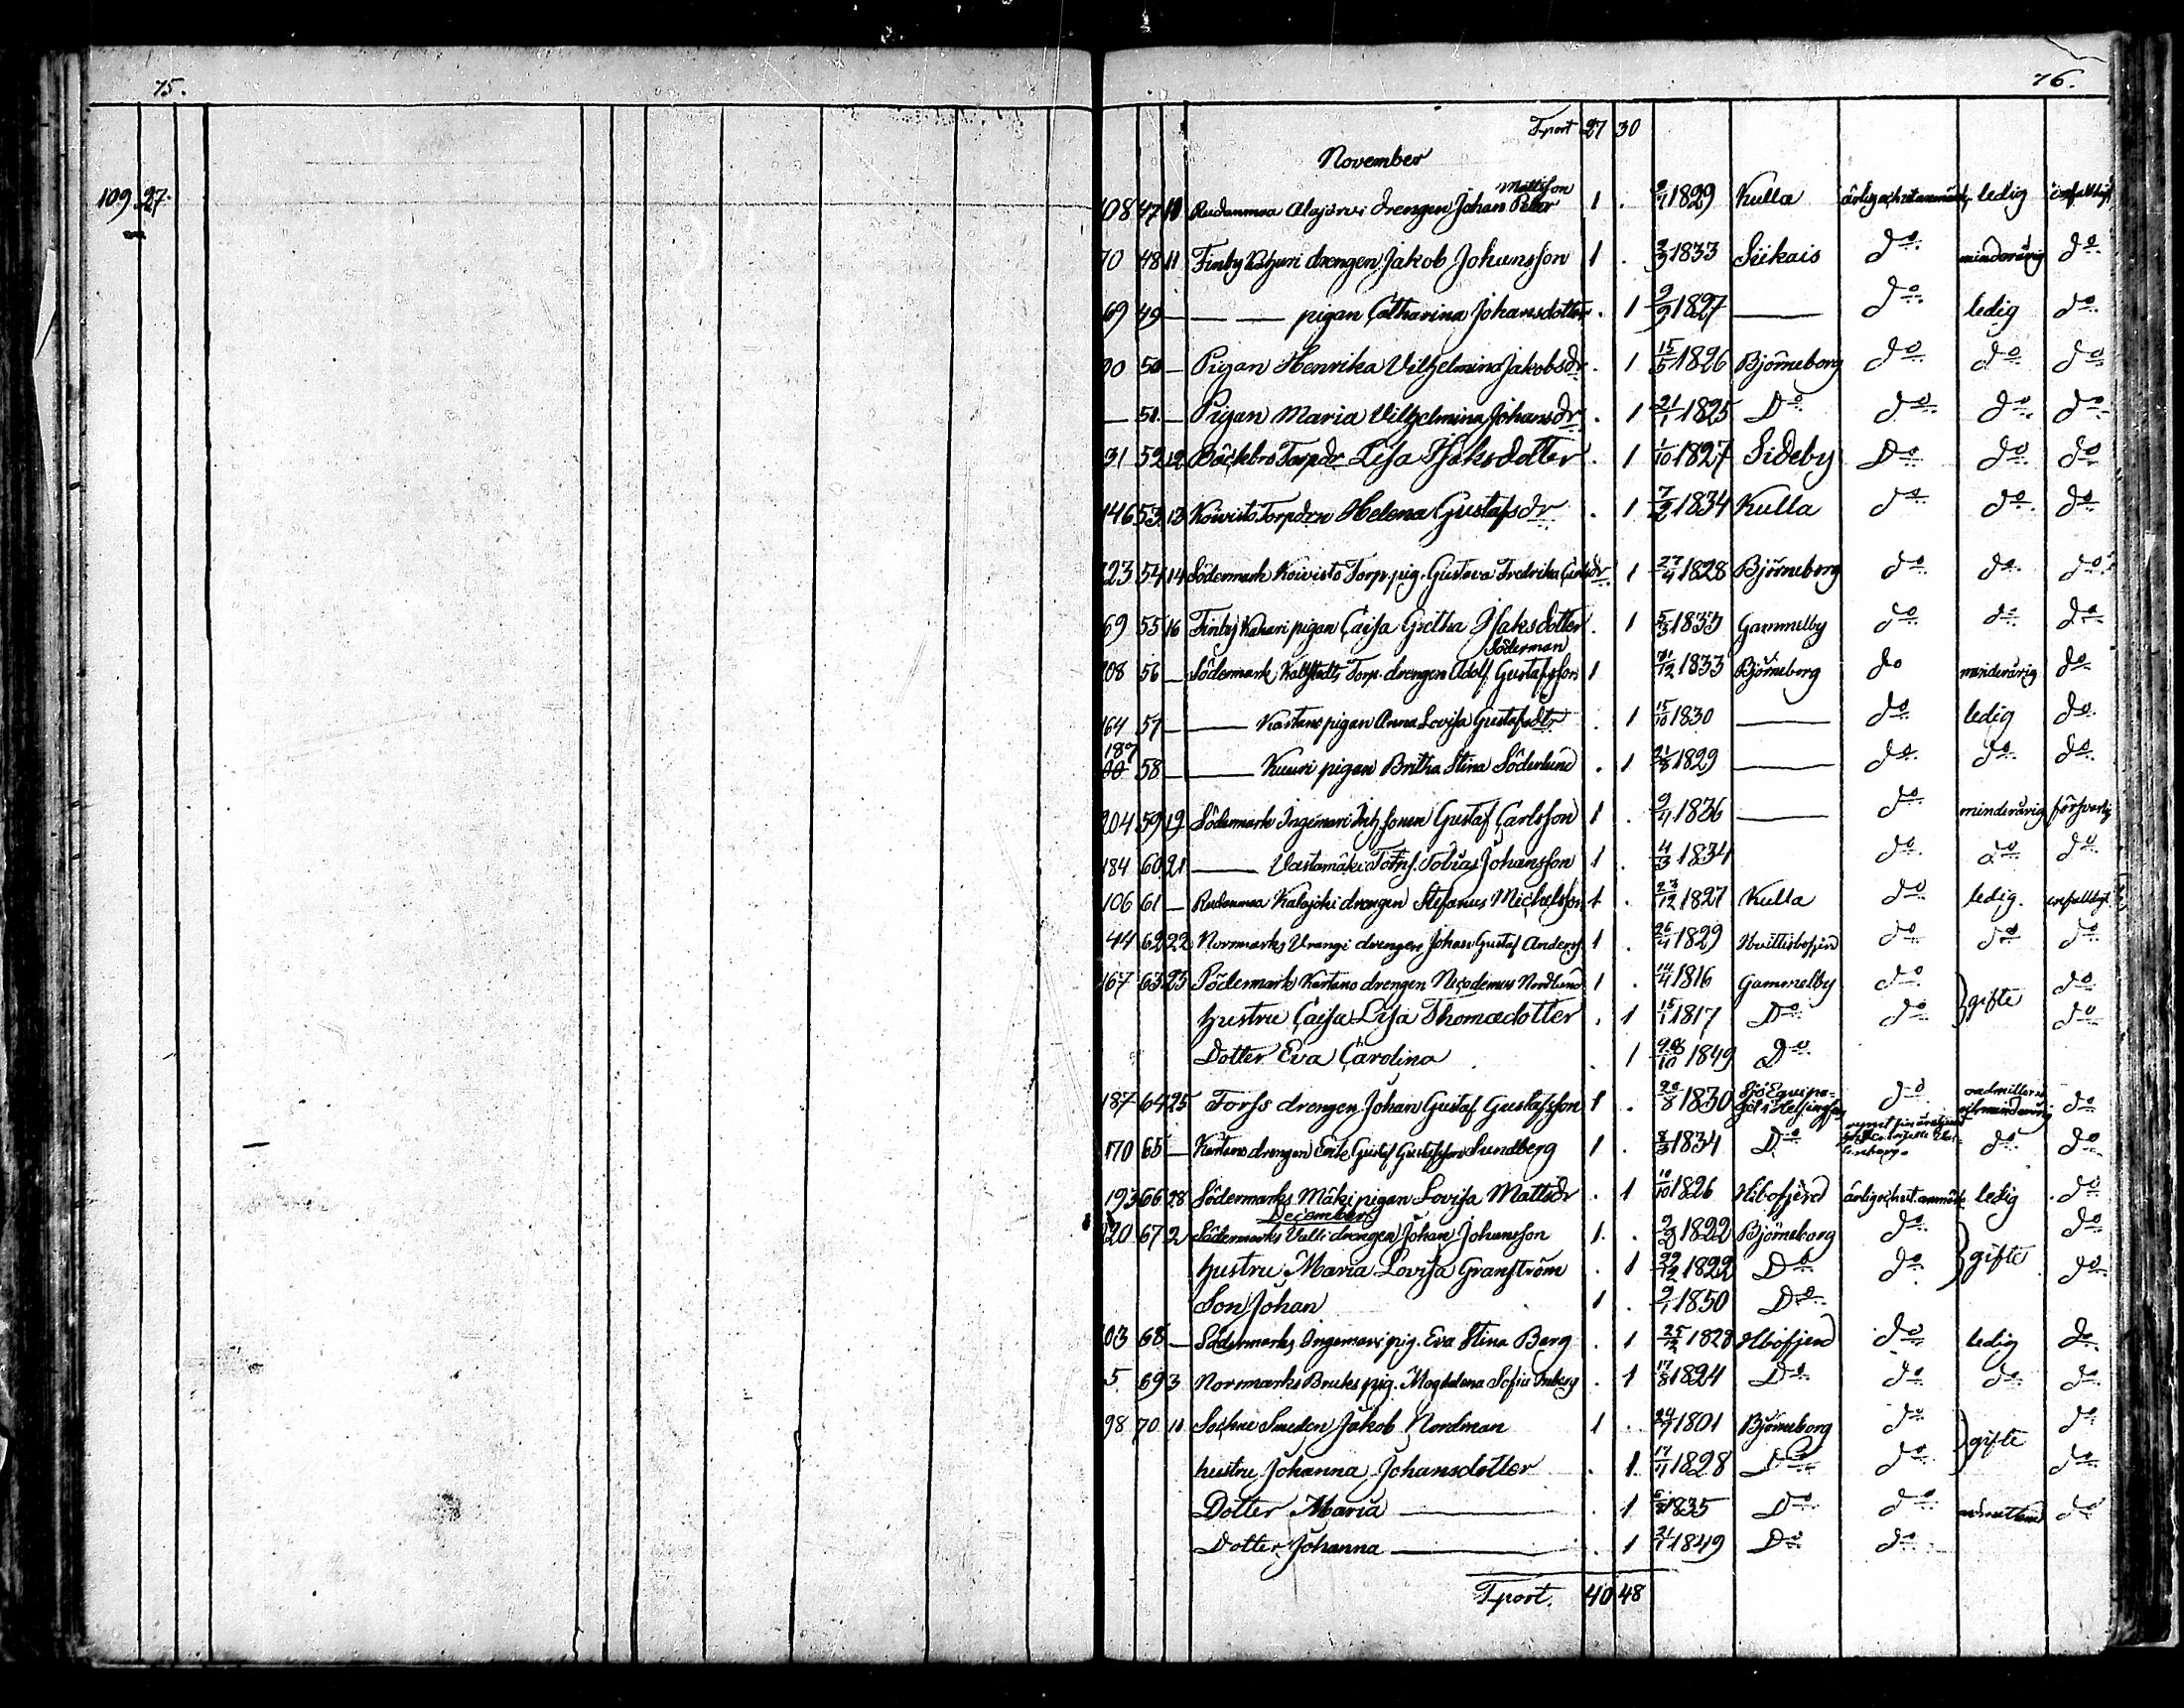 75.
76.
109 27.
Tport 27 30
November
Mattsson
108 47 10 Rudanmaa Alajärvi drengen Johan Peter 1 . 1829 Kulla ärlig och ledig
70 48 11 Finby drengen Jakob Johansson 1 . 3/3 1833 Siikais do minderårig do
69 49 — — pigan Catharina Johansdotter . 1 9/9 1827 — do ledig do
50 — Pigan Henrika Vilhelmina Jakobsdr . 1 15/5 1826 Björneborg do do do
— 51 — Pigan Maria Vilhelmina Johansdr . 1 21/1 1825 Do do do do
31 52 12 Bäckebro Torpdr Lisa Isaksdotter . 1 1/10 1827 Sideby Do do do
146 53 13 Koivisto Torpdrn Helena Gustafsdr . 1 7/2 1834 Kulla do do do
223 54 14 Södermark Koivisto Torp. pig. Gustava Fredrika Carlsdr 1 27/4 1828 Björneborg do do do
69 55 16 Finby Kahari pigan Caisa Gretha Isaksdotter . 1 5/3 1833 Gammelby do do do
Söderman
208 56 — Södermark Torp. drengen Adolf Gustafsson 1 /12 1833 Björneborg do minderårig do
164 57 — Kartano pigan Anna Lovisa Gustafsdtr . 1 15/10 1830 — do ledig do
187
58 — Kuuri pigan Britha Stina Söderlund . 1 21/8 1829 — do do do
204 59 19 Södermark Ingemari Inh. sonen Gustaf Carlsson 1 . 9/4 1836 — do minderårig försvarlig
184 60 21 — Vastamäki Tobias Johansson 1 . 4/3 1834 do do do
106 61 — Rudanmaa Kalajoki drengen Stefanus Michelsson 1 . 23/12 1827 Kulla do ledig.
44 62 22 Norrmarks Vrangi drengen Johan Gustaf Anders. 1 . 26/4 1829 do do do
167 63 23 Södermark Kartano drengen Nicodemus Nordlund 1 . 14/4 1816 Gammelby do gifte do
hustru Caisa Lisa Thomædotter . 1 15/1 1817 Do do do
Dotter Eva Carolina . 1 /10 1849 Do
187 64 25 Torps drengen Johan Gustaf Gustafsson 1 . 20/8 1830 Sjö Equipa- do do
170 65 — Kartano drengen Erik Gustaf Gustafsson Sundberg 1 . 8/3 1834 Do do do
193 66 28 Södermarks Mäki pigan Lovisa Mattsdr . 1 10/10 1826 ärlig och ledig do
December
220 67 2 Södermarks Valli drengen Johan Johansson 1. . 9/2 1822 Björneborg do gifte do
hustru Maria Lovisa Granström . 1 29/12 1822 Do do do
Son Johan 1 . 9/1 1850 Do
203 68 — Södermarks Ingemari pig. Eva Stina Berg . 1 25/12 1828 do ledig do
5 69 3 Norrmarks Bruks pig. Magdalena Sofia . 1 17/8 1824 Do do do do
98 70 11 Smeden Jakob Nordman 1 . 24/7 1801 Björneborg do gifte do
hustru Johanna Johansdotter . 1. 17/4 1828 Do do do
Dotter Maria — . 1 1835 Do do do
Dotter Johanna — . 1 21/1 1849 Do do
Tport. 40 48